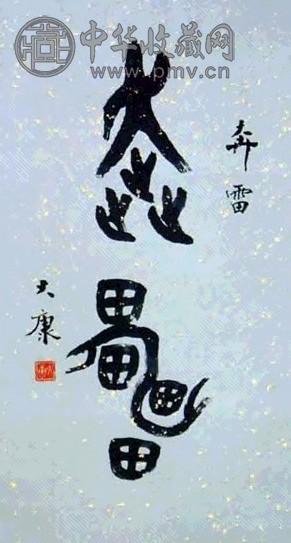 中华收藏网
www.pmv.cn
奔雷
奔雷
大康